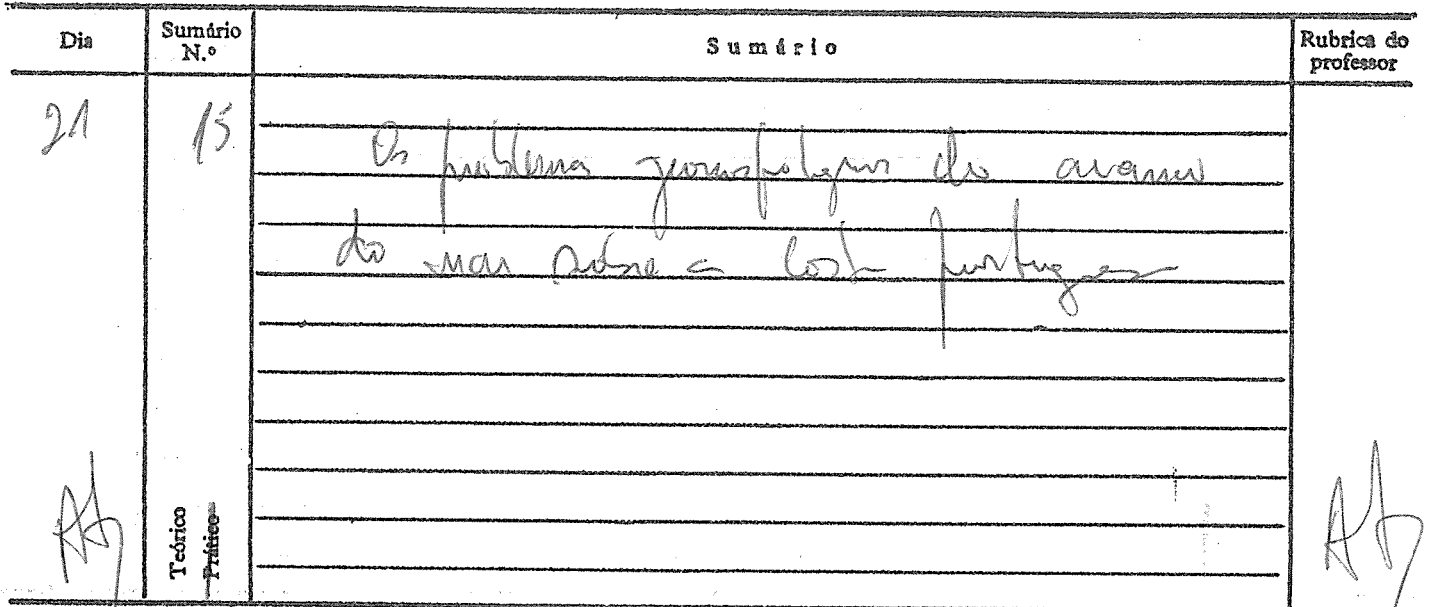 Dia Sumário N.º Sumário Rubrica do professor
21 15 Os problemas geomorfológicos do avanço
do mar sobre a costa portuguesa
Teórico
Prático